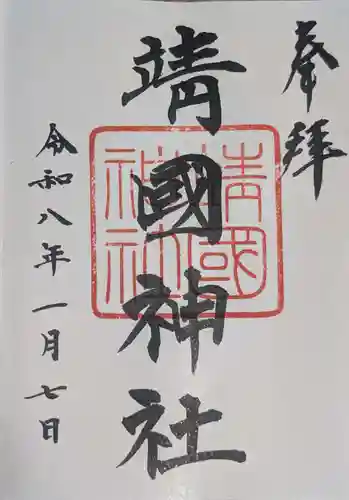 奉拝
靖國神社
靖國
神社
令和八年一月七日